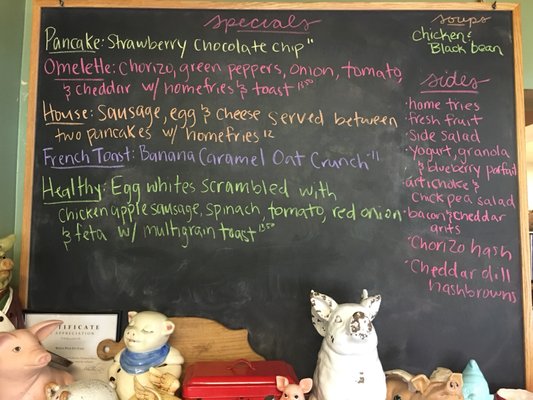 Specials
Pancake: Strawberry Chocolate chip 11
Omelette: Chorizo, green peppers, onion, tomato,
& cheddar w/ homefries & toast 13.50
House: Sausage, egg & cheese served between
two pancakes w/ homefries 12
French Toast: Banana Caramel Oat Crunch 11
Healthy: Egg whites scrambled with
chicken apple sausage, spinach, tomato, red onion
& feta w/ multigrain toast 13.50
soups
chicken &
Black bean
sides
·home fries
·fresh fruit
·side salad
·yogurt, granola
& blueberry parfait
·artichoke &
chick pea salad
·bacon & cheddar
grits
·Chorizo hash
·Cheddar dill
hashbrowns
CERTIFICATE
APPRECIATION